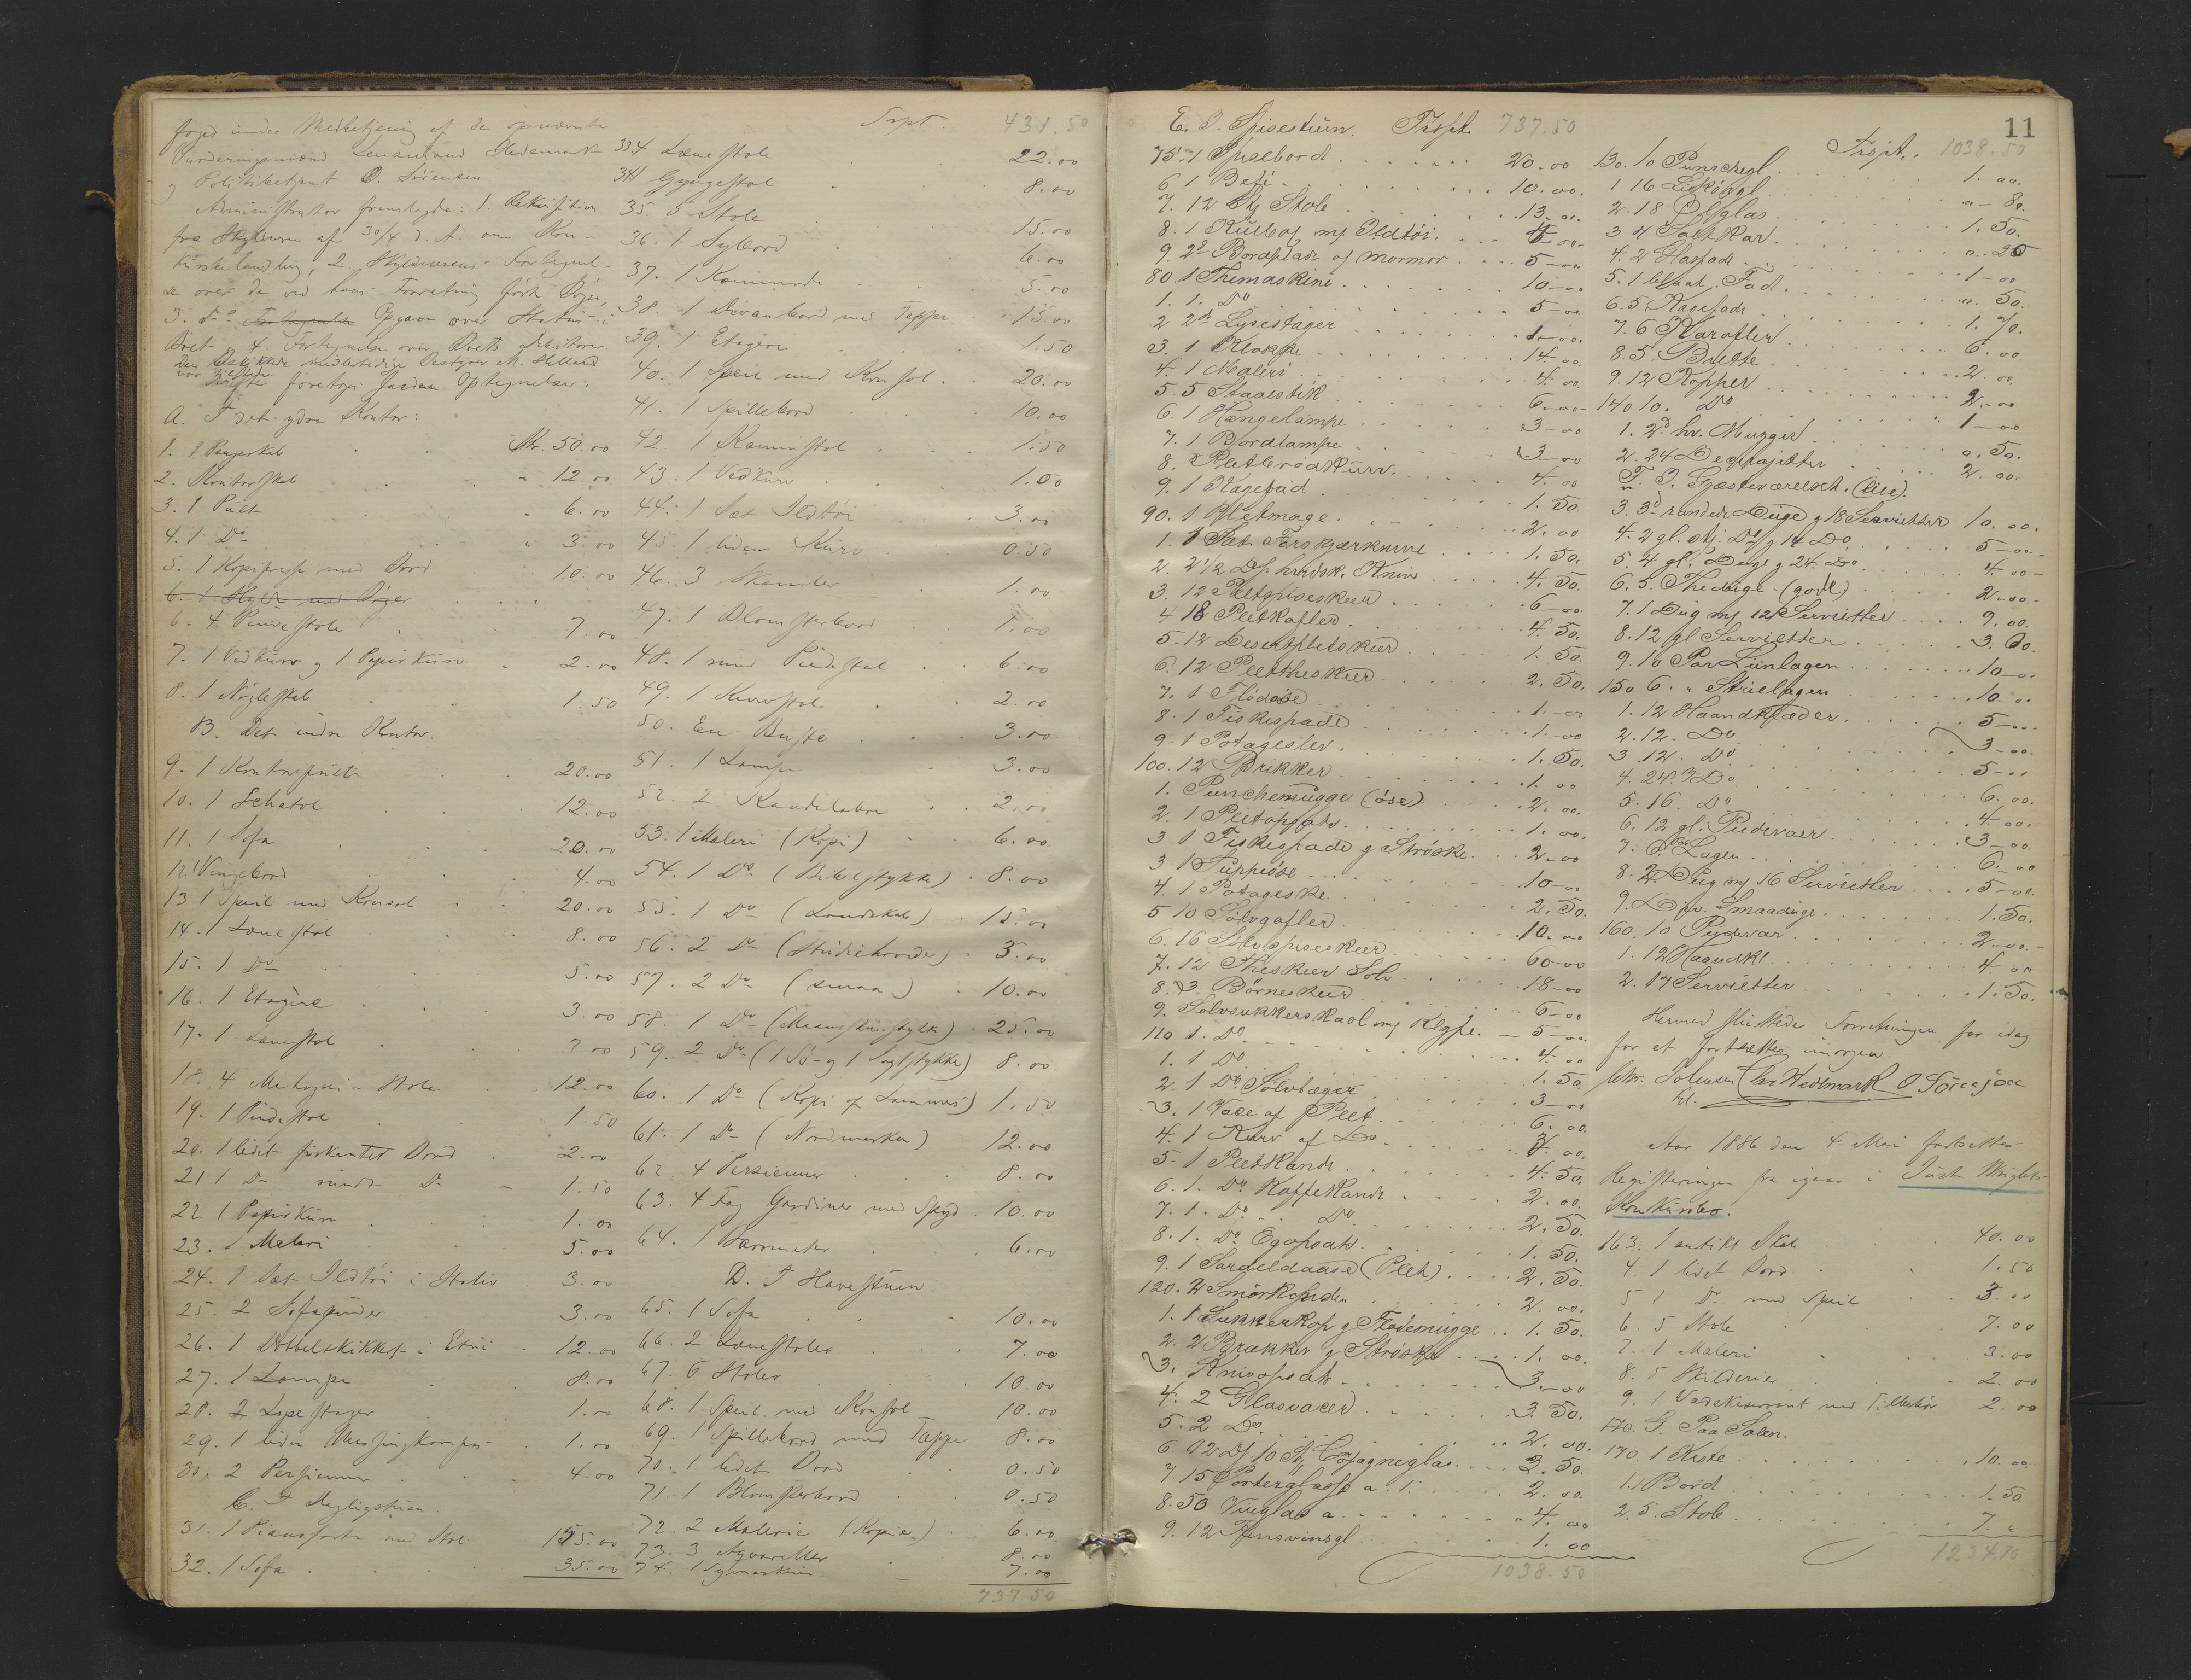 foged under Medbetjening af de opnævnte
Vurderingsmænd Lensmand Hedemark
og Politibetjent O. Sörensen.
Administrator fremlagde: 1. Rekvisition
fra Skyldneren af 30/4 d. A. om Kon-
kursbehandling, 2, Skyldnerens Fortegnel-
se over de ved hans Forretning förte Böger,
3. do Fortegnelse Opgave over Status i
Boet, 4. Fortegnelse over Boets Debitorer.
Den midlertidige Bestyrer
var tilstede
foretoges saadan Optegnelse:
A. I det ydre Kontor:
1. 1 Pengeskab Kr. 50.00
2. Kontorskab " 12.00
3. 1 Pult " 6.00
4. 1 Do " 3.00
5. 1 Kopipresse med Bord 10.00
6. 1 Hylde med Böger
6. 4 Pindestole 7.00
7. 1 Vedkurv og 1 Papirkurv 2.00
8. 1 Nögleskab 1.50
B. Det indre Kontor.
9. 1 Kontorpult 20.00
10. 1 Schatol 12.00
11. 1 Sofa 20.00
12 1 Vingebord 4.00
13 1 Speil med Konsol 20.00
14. 1 Lænestol 8.00
15. 1 Do 5.00
16. 1 Etagère 3.00
17. 1 Lænestol 3.00
18. 4 Mahogni-Stole 12.00
19. 1 Pindestol 1.50
20. 1 lidet firkantet Bord 2.00
21 1 Do rundt Do 1.50
22 1 Papirkurv 1.00
23. 1 Maleri 5.00
24. 1 Sæt Ildtöi i Stativ 3.00
25. 2 Sofapuder 3.00
26. 1 Dobbeltkikkert i Etui 12.00
27. 1 Lampe 8.00
28. 2 Lysestager 1.00
29. 1 liden Messingkompas 1.00
30. 2 Persienner 4.00
C. I Dagligstuen.
31. 1 Pianoforte med Stol 155.00
32. 1 Sofa 35.00
Trpt. 431.50
33 4 Lænestole 22.00
34 1 Gyngestol 8.00
35. 5 Stole 15.00
36. 1 Sybord 6.00
37. 1 Kommode 5.00
38. 1 Divanbord med Teppe 15.00
39. 1 Etagère 1.50
40. 1 Speil med Konsol 20.00
41. 1 Spillebord 10.00
42. 1 Kaminstol 1.50
43. 1 Vedkurv 1.00
44. 1 Sæt Ildtöi 3.00
45. 1 liden Kurv 0.50
46. 3 Skamler 1.00
47. 1 Blomsterbord 1.00
48. 1 rund Pindestol 6.00
49. 1 Kurvstol 2.00
50. En Buste 3.00
51. 1 Lampe 3.00
52. 2 Kandelabre 2.00
53. 1 Maleri (Kopi) 6.00
54. 1 Do (Bibelstykke) 8.00
55. 1 Do (Landskab) 15.00
56. 2 Do (Studiehoveder) 5.00
57. 2 Do (smaa) 10.00
58. 1 Do (Maaneskinsstykke) 25.00
59. 2 Do (1 Sö- og 1 Jagtstykke) 8.00
60. 1 Do (Kopi af Lammers) 1.50
61. 1 Do (Nordmarken) 12.00
62. 4 Persienner 8.00
63. 4 Fag Gardiner med Spyd 10.00
64. 1 Barometer 6.00
D. I Havestuen.
65. 1 Sofa 10.00
66. 2 Lænestoler 7.00
67. 6 Stoler 10.00
68. 1 Speil med Konsol 10.00
69. 1 Spillebord med Tæppe 8.00
70. 1 lidet Bord 0.50
71. 1 Blomsterbord 0.50
72. 2 Malerier (Kopier) 6.00
73. 3 Aqvareller 8.00
74. 1 Symaskine 7.00
737.50
E. I Spisestuen. Trspt. 737.50
75. 1 Spisebord 20.00
6 1 Bufé 10.00.
7. 12 Stole 13.00.
8. 1 Kulbox m/ Ildtöi. 4.00.
9. 2 Bordplade af marmor 5-00
80 1 Themaskine 10-00
1. 1. Do 5-00
2 2 Lysestager 1-00.
3. 1 Klokke 14 00
4. 1 Maleri 4. 00
5 5 Staalstik 6-00-
6. 1 Hængelampe 3-00
7. 1 Bordlampe 3-00
8. Pletbrödkurv. 4. 00
9. 1 Kagefad 1. 50.
90. 1 Pletmage. 2. 00
1. 1 Sæt Forskjærknive 1. 50.
2. 2 1/2 Ds. Knive 4. 50.
3. 12 Pletspiseskeer 6-00
4 18 Pletgafler 4. 50.
5. 12 Desertpletskeer 1. 50.
6. 12 Pletteskeer 2. 50.
7. 1 Flödeöse 1.-00
8. 1 Fiskespade 1.-00
9. 1 Potageslev. 1. 50.
100. 12 Brikker 1. 00
1. Punchemugge (öse) 2. 00.
2. 1 Pletopsats 1. 00.
3 1 Fiskespade g Ströske 2.-00
3 1 Suppeöse 10-00
4. 1 Potageske 2. 50.
5 10 Sölvgafler 10. 00
6. 16 Sölvspiseskeer 60-00
7. 12 Theskeer Sölv 18-00
8. 3 Börneskeer 6-00
9. Sölvsukkerskaal m/ Klype. 5-00.
110 1. Do 4. 00
1. 1 Do 1. 50
2. 1 Do Sölvbæger 3-00
3. 1 Vase af Plet 6. 00.
4. 1 Kurv af Do 4. 00.
5. 1 Pletkande 4. 50.
6. 1. Do Kaffekande 2. 00.
7. 1. Do Do 2. 50.
8. 1. Do Egopsats 1. 50.
9. 1 Sardeldaase (Plet) 2. 50.
120. 2 2. 00.
1. 1 Sukkerkop g Flödemugge 1. 50.
2. 2 Brækker g Ströske 1. 00.
3. Knivopsats 3.-00
4. 2 Glasvaser 3. 50.
5. 2 Do 2. 00.
6. 12 Dj 10 St. Campagneglas 3. 50.
7. 15 Porterglass a 2. 00.
8. 50 Vinglas a 4. 00
9. 12 Rhinsvinsgl 1. 00
1038.50
11
Trspt. 1038.50
130. 10 Punschegl 1. 00.
1 16 Likörgl 0-80.
2. 18 Ölglas 1. 50.
3 4 Saltkar 0. 25
4. 2 1-00
5. 1 blaat. Fad 0. 50.
6. 5 Kagefade 1. 70.
7. 6 Karafler 6. 00
8. 5. Brette 2. 00
9. 12 Kopper 2.-00
140 10. Do 1-00
1. 2 hv. Mugger 0. 50.
2. 24 2. 00.
F. I. Gjæsteværelset. (lille).
3. 3 randede Duge g 18 Servietter 10. 00.
4. 2 gl. Do g 14 Do 5-00.-
5. 4 gl. Duge g 24. Do 4-00-
6. 5 Theduge. (gode) 2-00.-
7. 1 Dug m/ 12 Servietter 9. 00.
8. 12 gl Servietter 3. 60.
9. 10 Par Linlagen 10-00
150 6. " Strielagen 10. 00
1. 12 Haandklæder 5-00.
2. 12. Do 3-00.
3 12. Do 5-00
4. 24. Do 6. 00.
5. 16. Do 4. 00.
6. 12 gl. Pudevaer 3-00.
7. 6 Par Lagen 6.-00
8. 2 Dug m/ 16 Servietter 5-00.
9. Div. Smaaduge 1. 50.
160. 10 Pudevar 2-00.-
1. 12 Haandkl. 4. 00
2. 17 Servietter 1. 50.
Hermed sluttede Forretningen for idag
for at fortsættes imorgen.
Chr. Johnsen Chr Hedemark
Aar 1886 den 4 Mai fortsattes
Registreringen fra igaar i Just Wrights
Konkursbo.
163. 1 antikt Skab 40.00
4. 1 lidet Bord 1.50
5 1 Do med Speil 3.00
6. 5 Stole 7.00
7. 1 Maleri 3.00
8. 5 Skilderier 2.00
9. 1 Vaskeservant med Tilbehör 2.00
170. G. Paa Salen.
170. 1 Kiste 10. 00
1. 1 Bord 1.50
2. 5. Stole 7. "
1234.70